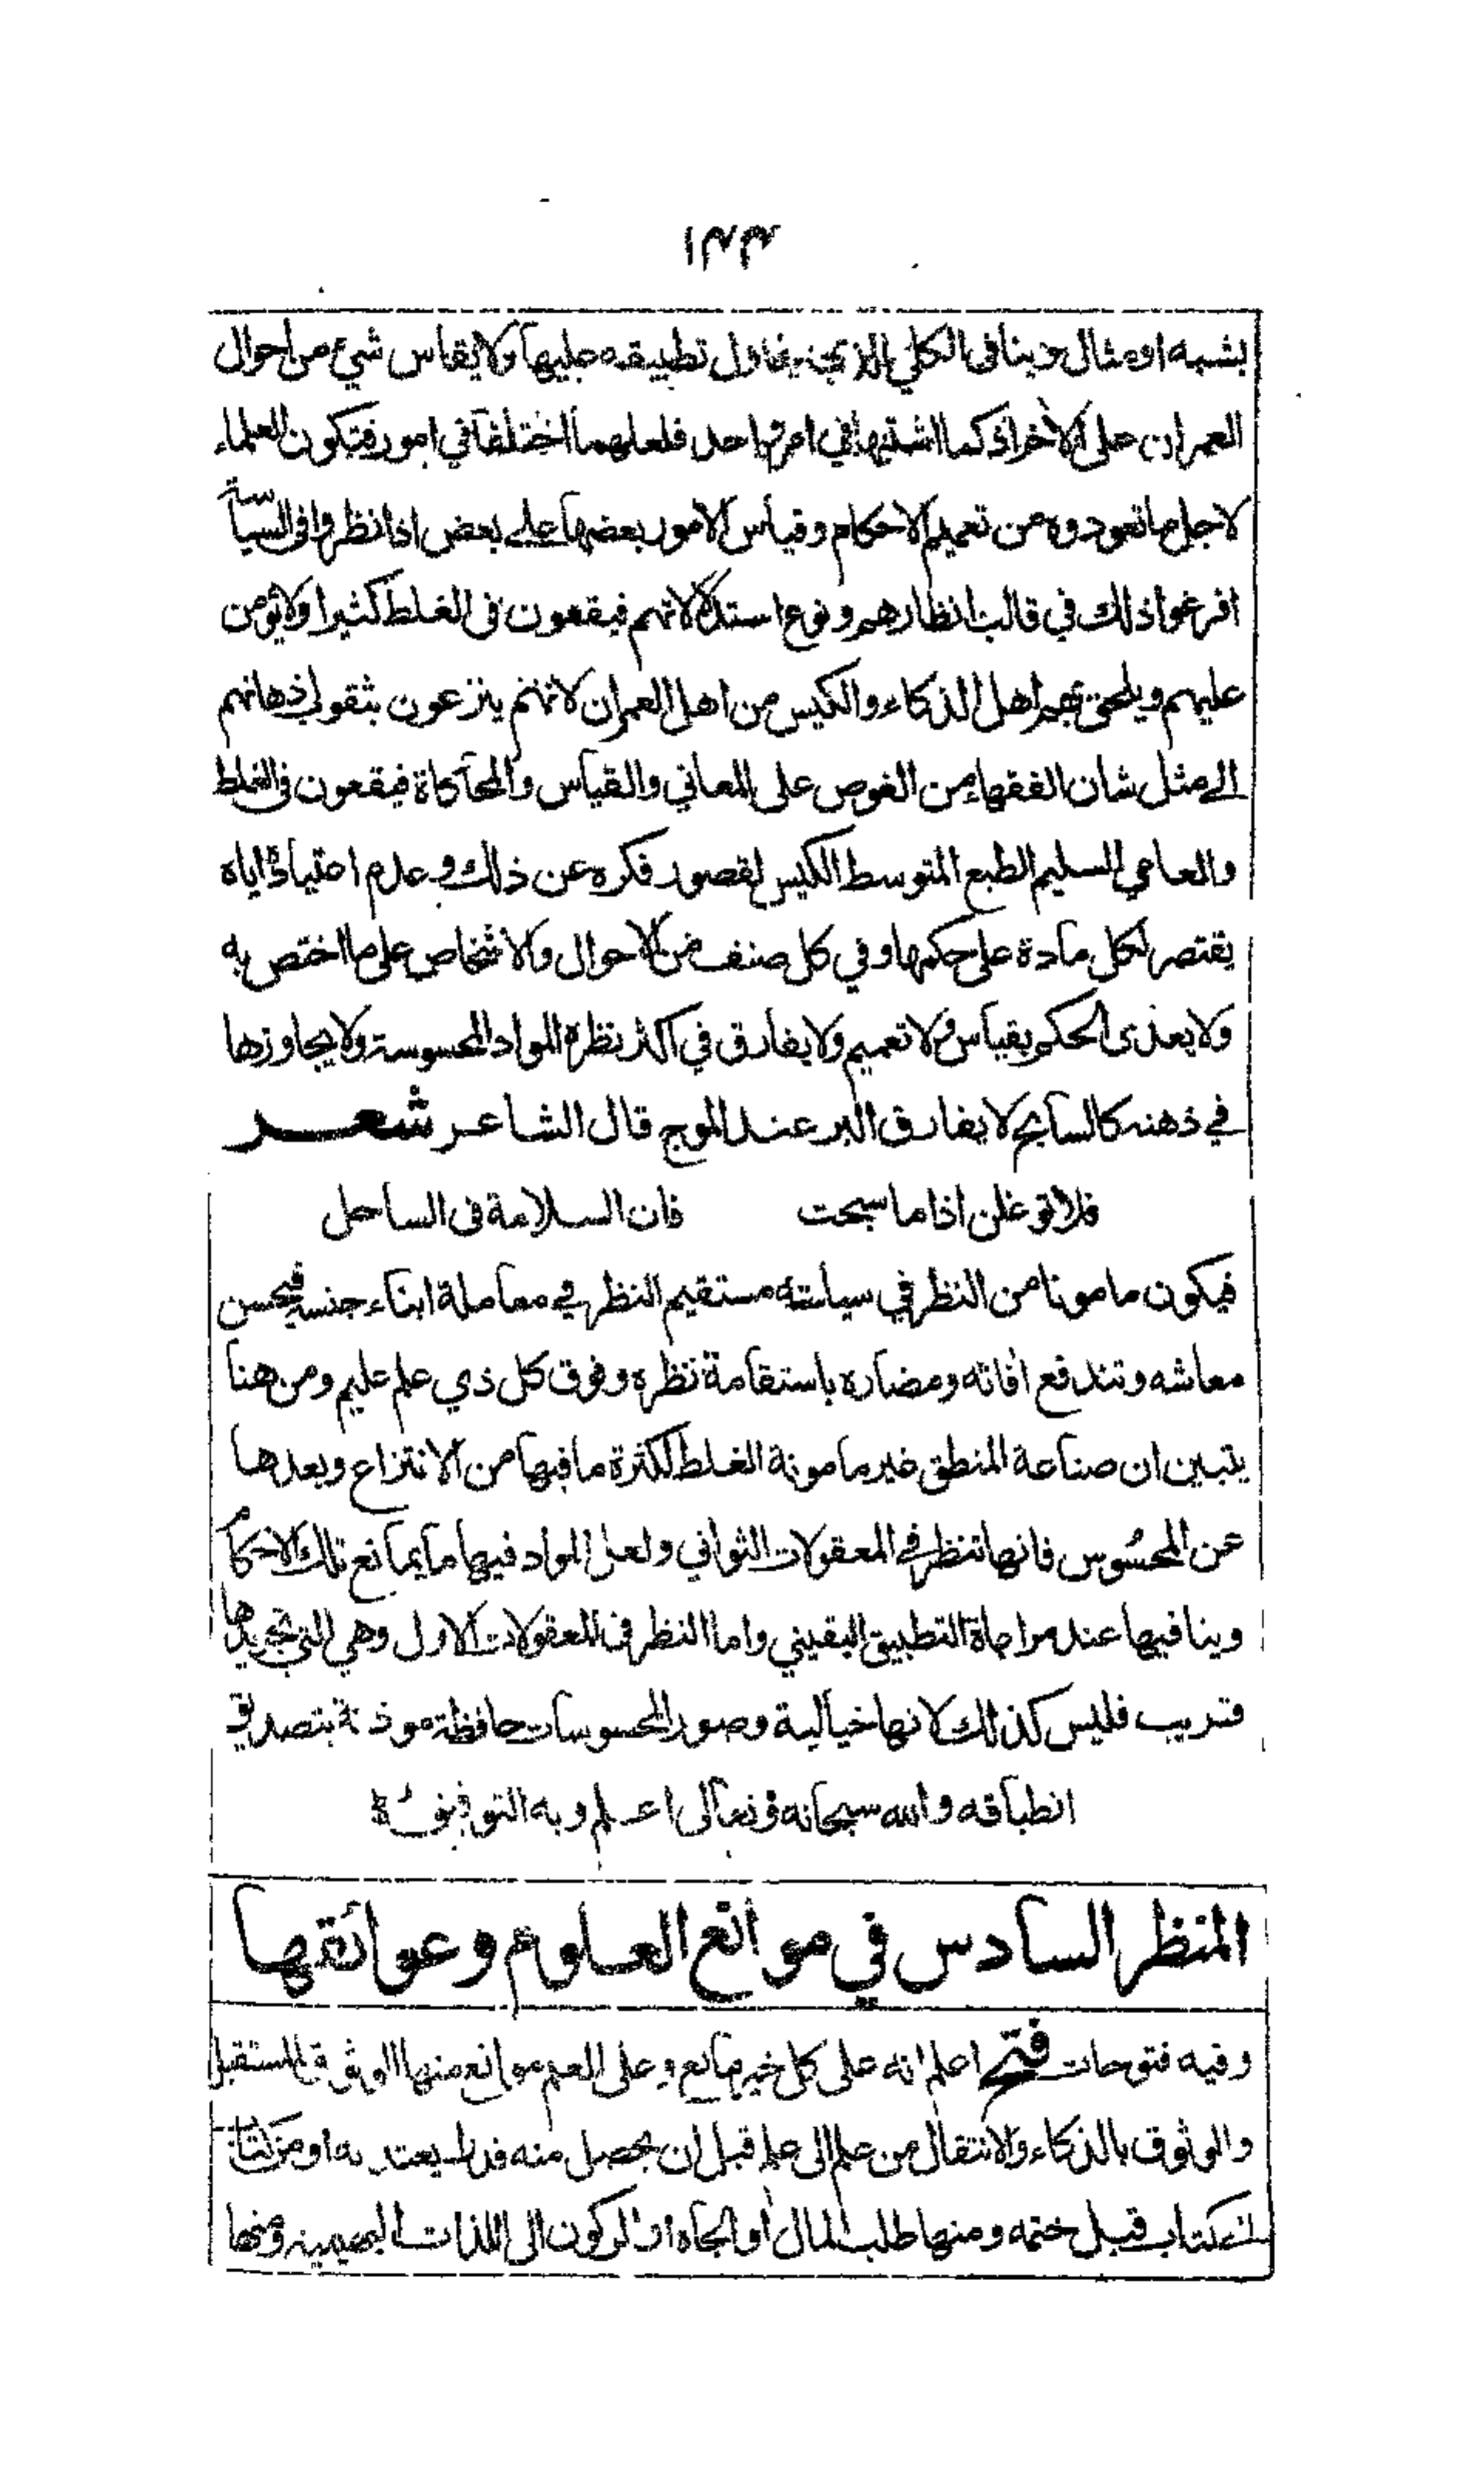 ١٢٣
بشبه او مثال وينافى الكلي الذي يحاول تطبيقه عليها ولا يقاس شيء من احوال
العمران على الاخر اذ كما اشتبها في امر واحد فلعلهما اختلفا في امور فتكون العلماء
لاجل ما تعودوه من تعميم الاحكام وقياس الامور بعضها على بعض اذا نظروا فى السياسة
افرغوا ذلك في قالب انظارهم ونوع استدلالاتهم فيقعون فى الغلط كثيرا ولا يؤمن
عليهم ويلحق بهم اهل الذكاء والكيس من اهل العمران لانهم ينزعون بثقوب اذهانهم
الى مثل شان الفقهاء من الغوص على المعاني والقياس والمحاكاة فيقعون فى الغلط
والعامي السليم الطبع المتوسط الكيس لقصور فكره عن ذلك وعدم اعتياده اياه
يقتصر لكل مادة على حكمها وفي كل صنف من الاحوال والاشخاص على ما اختص به
ولا يعدى الحكم بقياس ولا تعميم ولا يفارق في اكثر نظره المواد المحسوسة ولا يجاوزها
في ذهنه كالسابح لا يفارق البر عند الموج قال الشاعر شعر
فلا توغلن اذا ما سبحت فان السلامة فى الساحل
فيكون مامونا من النظر في سياسته مستقيم النظر في معاملة ابناء جنسه فيحسن
معاشه وتندفع افاته ومضاره باستقامة نظره وفوق كل ذي علم عليم ومن هنا
يتبين ان صناعة المنطق غير مامونة الغلط لكثرة ما فيها من الانتزاع وبعدها
عن المحسوس فانها تنظر في المعقولات الثواني ولعل المواد فيها ما يمانع تلك الاحكام
وينافيها عند مراعاة التطبيق اليقيني واما النظر في المعقولات الاول وهي التي تجريدها
قريب فليس كذلك لانها خيالية وصور المحسوسات حافظة موذنة بتصديق
انطباقه والله سبحانه وتعالى اعلم وبه التوفيق
المنظر السادس في موانع العلوم وعوائقها
وفيه فتوحات فتح اعلم انه على كل خير مانع وعلى العلم موانع منها الوثوق بالمستقبل
والوثوق بالذكاء والانتقال من علم الى علم قبل ان يحصل منه قدر يعتد به او من كتاب
الى كتاب قبل ختمه ومنها طلب المال او الجاه او الركون الى اللذات البهيمية ومنها